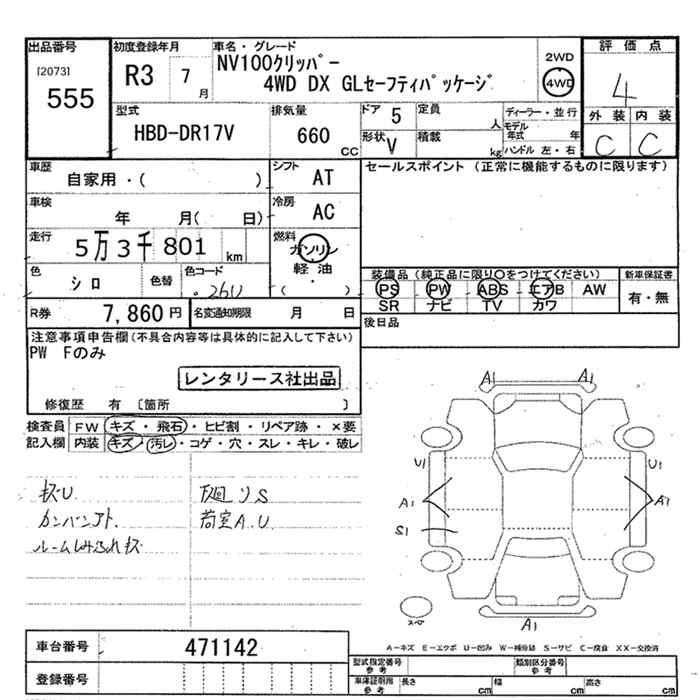 出品番号 初度登録年月 車名・グレード 評価点
[2073] 555 R3 7月 NV100クリッパー 2WD
4WD DX GLセーフティパッケージ 4WD 4
型式 排気量 ドア 5 定員 人 ディーラー・並行 外装 内装
HBD-DR17V 660 CC 形状 V 積載 kg モデル年式 年 ハンドル 左・右 C C
車歴 シフト セールスポイント (正常に機能するものに限ります)
自家用・( ) AT
車検 年 月( 日) 冷房 AC
走行 5万3千801km 燃料 ガソリン
軽油
( ・ )
色 シロ 色替 色コード 26U
装備品(純正品に限り○をつけてください) 新車保証書
PS PW ABS エアB AW 有・無
SR ナビ TV カワ
R券 7,860円 名変通知期限 月 日 後日品
注意事項申告欄(不具合内容等は具体的に記入して下さい)
PW Fのみ
レンタリース社出品
修復歴 有 〔箇所 〕
検査員 FW キズ・飛石・ヒビ割・リペア跡・×要
記入欄 内装 キズ・汚レ・コゲ・穴・スレ・キレ・破レ
下廻リS
カンバンアト. 荷室A.U
A1 A1
U1 U1
A1 A1
S1
スペア
A1
A-キズ E-エクボ U-凹み W-補修跡 S-サビ C-腐食 XX-交換済
車台番号 471142
登録番号
型式指定番号 参考 類別区分番号 参考
車庫証明用 参考 長さ cm 幅 cm 高さ cm